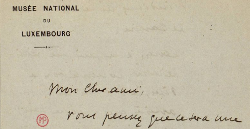 MUSÉE NATIONAL
DU
LUXEMBOURG
Mon cher ami,
Vous pensez que ce sera une